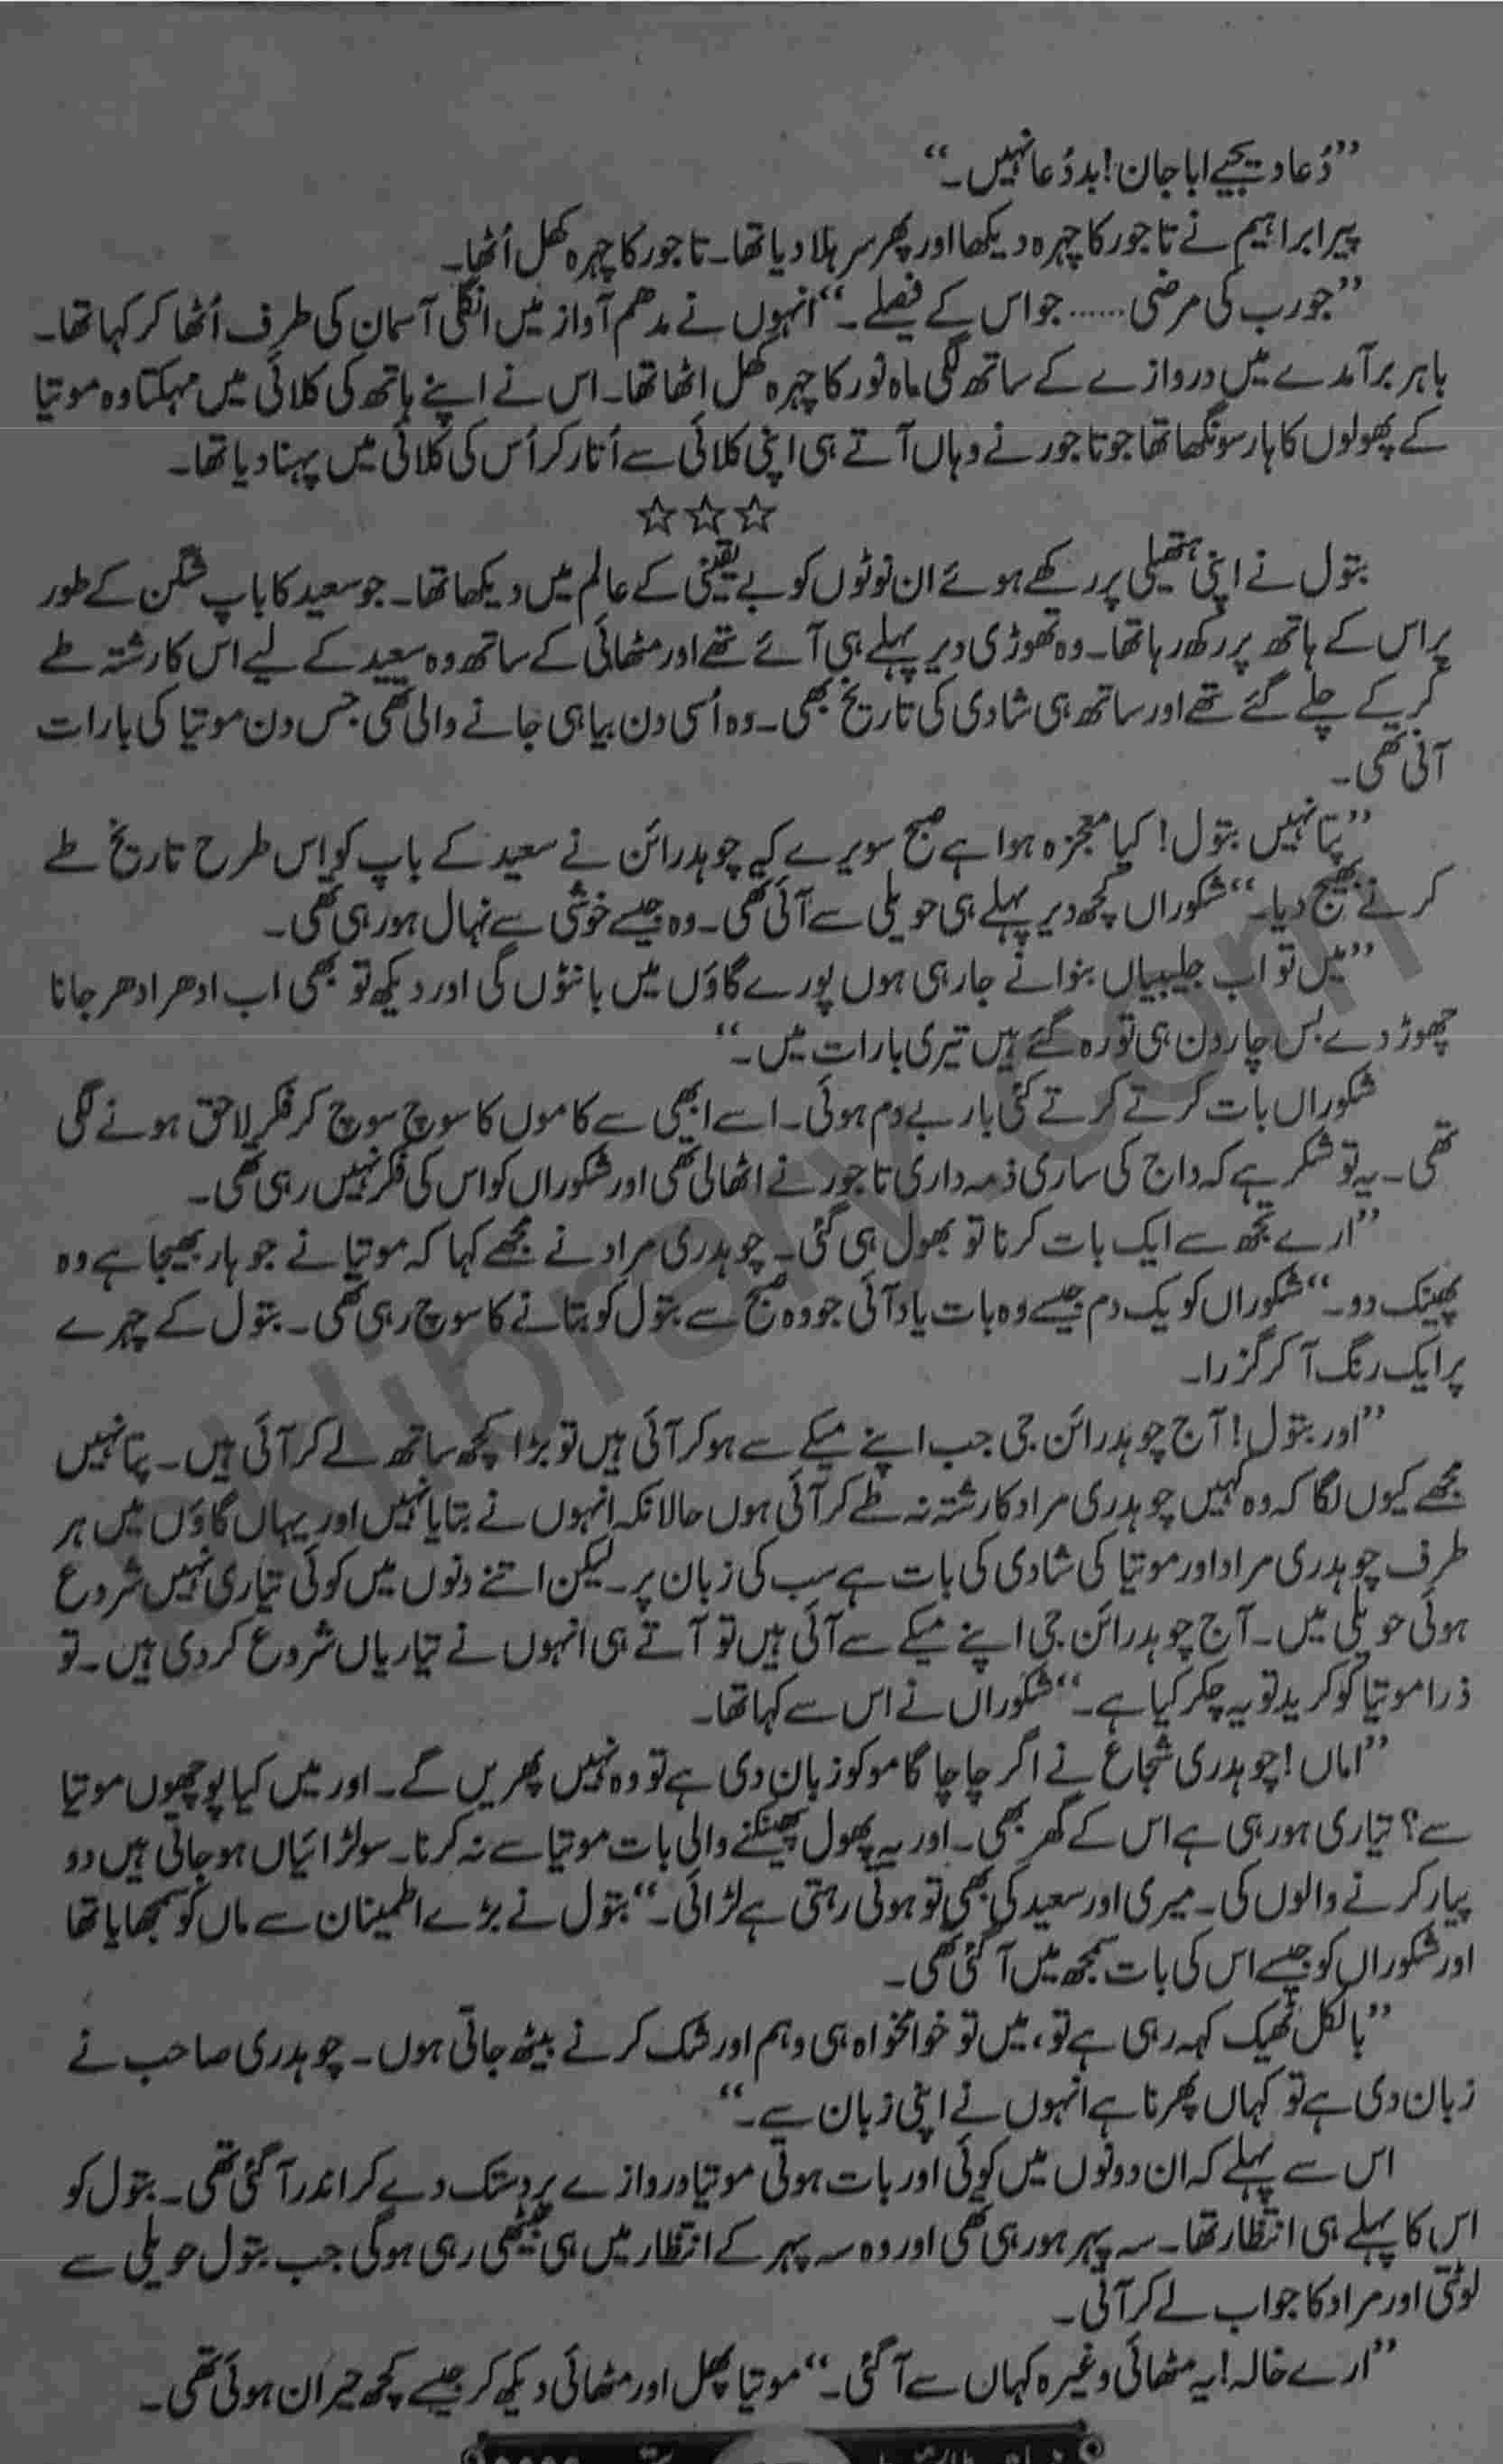 ”دُعا دیجیے ابا جان! بددُعا نہیں۔“
پیر ابراہیم نے تاجور کا چہرہ دیکھا اور پھر سر ہلا دیا تھا۔ تاجور کا چہرہ کھل اُٹھا۔
”جو رب کی مرضی...... جو اس کے فیصلے۔“ انہوں نے مدھم آواز میں انگلی آسمان کی طرف اُٹھا کر کہا تھا۔
باہر برآمدے میں دروازے کے ساتھ لگی ماہ نور کا چہرہ کھل اٹھا تھا۔ اس نے اپنے ہاتھ کی کلائی میں مہکتا وہ موتیا
کے پھولوں کا ہار سونگھا تھا جو تاجور نے وہاں آتے ہی اپنی کلائی سے اُتار کر اُس کی کلائی میں پہنا دیا تھا۔
☆☆☆
بتول نے اپنی ہتھیلی پر رکھے ہوئے ان نوٹوں کو بے یقینی کے عالم میں دیکھا تھا۔ جو سعید کا باپ شگن کے طور
پر اس کے ہاتھ پر رکھ رہا تھا۔ وہ تھوڑی دیر پہلے ہی آئے تھے اور مٹھائی کے ساتھ وہ سعید کے لیے اس کا رشتہ طے
کر کے چلے گئے تھے اور ساتھ ہی شادی کی تاریخ بھی۔ وہ اُسی دن بیاہی جانے والی تھی جس دن موتیا کی بارات
آنی تھی۔
”پتا نہیں بتول! کیا معجزہ ہوا ہے صبح سویرے کہ چوہدرائن نے سعید کے باپ کو اِس طرح تاریخ طے
کرنے بھیج دیا۔“ شکوراں کچھ دیر پہلے ہی حویلی سے آئی تھی۔ وہ جیسے خوشی سے نہال ہو رہی تھی۔
”میں تو اب جلیبیاں بنوانے جا رہی ہوں پورے گاؤں میں بانٹوں گی اور دیکھ تو بھی اب ادھر ادھر جانا
چھوڑ دے بس چار دن ہی تو رہ گئے ہیں تیری بارات میں۔“
شکوراں بات کرتے کرتے کئی بار بے دم ہوئی۔ اسے ابھی سے کاموں کا سوچ سوچ کر فکر لاحق ہونے لگی
تھی۔ یہ تو شکر ہے کہ داج کی ساری ذمہ داری تاجور نے اٹھالی تھی اور شکوراں کو اس کی فکر نہیں رہی تھی۔
”ارے تجھ سے ایک بات کرنا تو بھول ہی گئی۔ چوہدری مراد نے مجھے کہا کہ موتیا نے جو ہار بھیجا ہے وہ
پھینک دو۔“ شکوراں کو یک دم جیسے وہ بات یاد آئی جو وہ صبح سے بتول کو بتانے کا سوچ رہی تھی۔ بتول کے چہرے
پر ایک رنگ آ کر گزرا۔
”اور بتول! آج چوہدرائن جی جب اپنے میکے سے ہو کر آئی ہیں تو بڑا کچھ ساتھ لے کر آئی ہیں۔ پتا نہیں
مجھے کیوں لگا کہ وہ کہیں چوہدری مراد کا رشتہ نہ طے کر آئی ہوں حالانکہ انہوں نے بتایا نہیں اور یہاں گاؤں میں ہر
طرف چوہدری مراد اور موتیا کی شادی کی بات ہے سب کی زبان پر۔ لیکن اتنے دنوں میں کوئی تیاری نہیں شروع
ہوئی حویلی میں۔ آج چوہدرائن جی اپنے میکے سے آئی ہیں تو آتے ہی انہوں نے تیاریاں شروع کر دی ہیں۔ تو
ذرا موتیا کو کرید تو یہ چکر کیا ہے۔“ شکوراں نے اس سے کہا تھا۔
”اماں! چوہدری شجاع نے اگر چاچا گامو کو زبان دی ہے تو وہ نہیں پھریں گے۔ اور میں کیا پوچھوں موتیا
سے؟ تیاری ہو رہی ہے اس کے گھر بھی۔ اور یہ پھول پھینکنے والی بات موتیا سے نہ کرنا۔ سو لڑائیاں ہو جاتی ہیں دو
پیار کرنے والوں کی۔ میری اور سعید کی بھی تو ہوتی رہتی ہے لڑائی۔“ بتول نے بڑے اطمینان سے ماں کو سمجھایا تھا
اور شکوراں کو جیسے اس کی بات سمجھ میں آ گئی تھی۔
”بالکل ٹھیک کہہ رہی ہے تو، میں تو خوامخواہ ہی وہم اور شک کرنے بیٹھ جاتی ہوں۔ چوہدری صاحب نے
زبان دی ہے تو کہاں پھرنا ہے انہوں نے اپنی زبان سے۔“
اس سے پہلے کہ ان دونوں میں کوئی اور بات ہوتی موتیا دروازے پر دستک دے کر اندر آ گئی تھی۔ بتول کو
اس کا پہلے ہی انتظار تھا۔ سہ پہر ہو رہی تھی اور وہ سہ پہر کے انتظار میں ہی بیٹھی رہی ہوگی جب بتول حویلی سے
لوٹتی اور مراد کا جواب لے کر آتی۔
”ارے خالہ! یہ مٹھائی وغیرہ کہاں سے آ گئی۔“ موتیا پھل اور مٹھائی دیکھ کر جیسے کچھ حیران ہوئی تھی۔